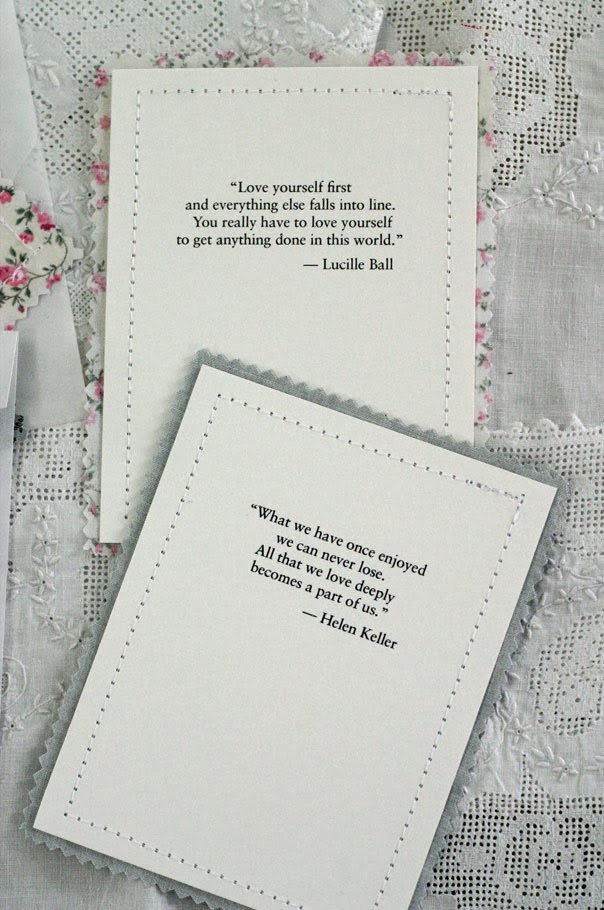 “Love yourself first
and everything else falls into line.
You really have to love yourself
to get anything done in this world.”
— Lucille Ball
“What we have once enjoyed
we can never lose.
All that we love deeply
becomes a part of us.”
— Helen Keller